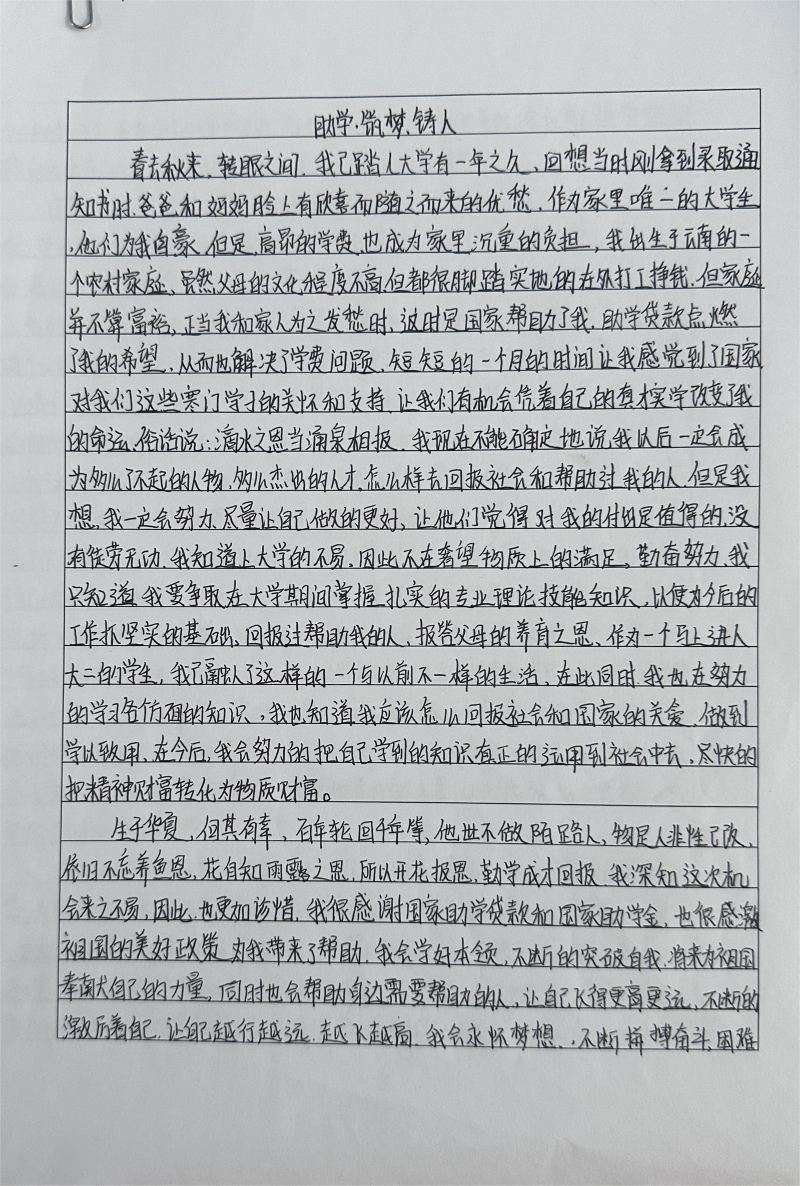 助学·筑梦·铸人
春去秋来，转眼之间，我已踏入大学有一年之久，回想当时刚拿到录取通
知书时，爸爸和妈妈脸上有欣喜而随之而来的优愁，作为家里唯一的大学生
，他们为我自豪，但是，高昂的学费，也成为家里沉重的负担，我出生于云南的一
个农村家庭，虽然父母的文化程度不高，但都很脚踏实地的在外打工挣钱，但家庭
并不算富裕，正当我和家人为之发愁时，这时是国家帮助了我，助学贷款点燃
了我的希望，从而也解决了学费问题，短短的一个月的时间让我感觉到了国家
对我们这些寒门学子的关怀和支持，让我们有机会凭着自己的真才实学改变了我
的命运，俗话说：滴水之恩当涌泉相报，我现在不能不确定地说，我以后一定会成
为多么了不起的人物，多么杰出的人才，怎么样去回报社会和帮助过我的人，但是我
想，我一定会努力、尽量让自己做的更好，让他们觉得对我的付出是值得的，没
有徒劳无功，我知道上大学的不易，因此不在奢望物质上的满足，勤奋努力，我
只知道，我要争取在大学期间掌握扎实的专业理论技能知识，以便为今后的
工作抓坚实的基础、回报过帮助我的人，报答父母的养育之恩、作为一个马上进入
大二的学生，我已融入了这样的一个与以前不一样的生活，在此同时，我也在努力
的学习各方面的知识，我也知道我应该怎么回报社会和国家的关爱，做到
学以致用，在今后，我会努力的把自己学到的知识真正的运用到社会中去，尽快的
把精神财富转化为物质财富。
生于华夏，何其有幸，百年轮回千年等，他世不做陌路人，物是人非性已改，
依旧不忘养鱼恩，花自知雨露之恩，所以开花报恩，勤学成才回报，我深知这次机
会来之不易，因此，也更加该惜，我很感谢国家助学贷款和国家助学金，也很感激
祖国的美好政策为我带来了帮助，我会学好本领，不断的突破自我，将来为祖国
奉献自己的力量，同时也会帮助身边需要帮助的人，让自己飞得更高更远，不断的
激励着自己，让自己越行越远，越飞越高，我会永怀梦想，，不断拼搏奋斗，困难